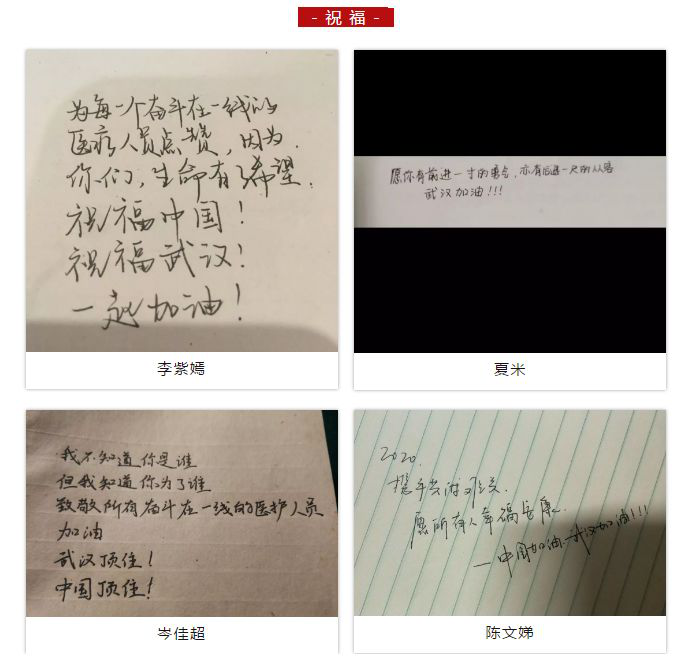 - 祝 福 -
为每一个奋斗在一线的
医疗人员点赞，因为
你们，生命有了希望．
祝福中国！
祝福武汉！
一起加油！
李紫嫣
愿你有前进一寸的勇气，亦有后退一尺的从容
武汉加油！！！
夏米
我不知道你是谁
但我知道你为了谁
致敬所有奋斗在一线的医护人员
加油
武汉顶住！
中国顶住！
岑佳超
2020.
携手共渡难关．
愿所有人幸福安康
—中国加油．武汉加油！！！
陈文娣